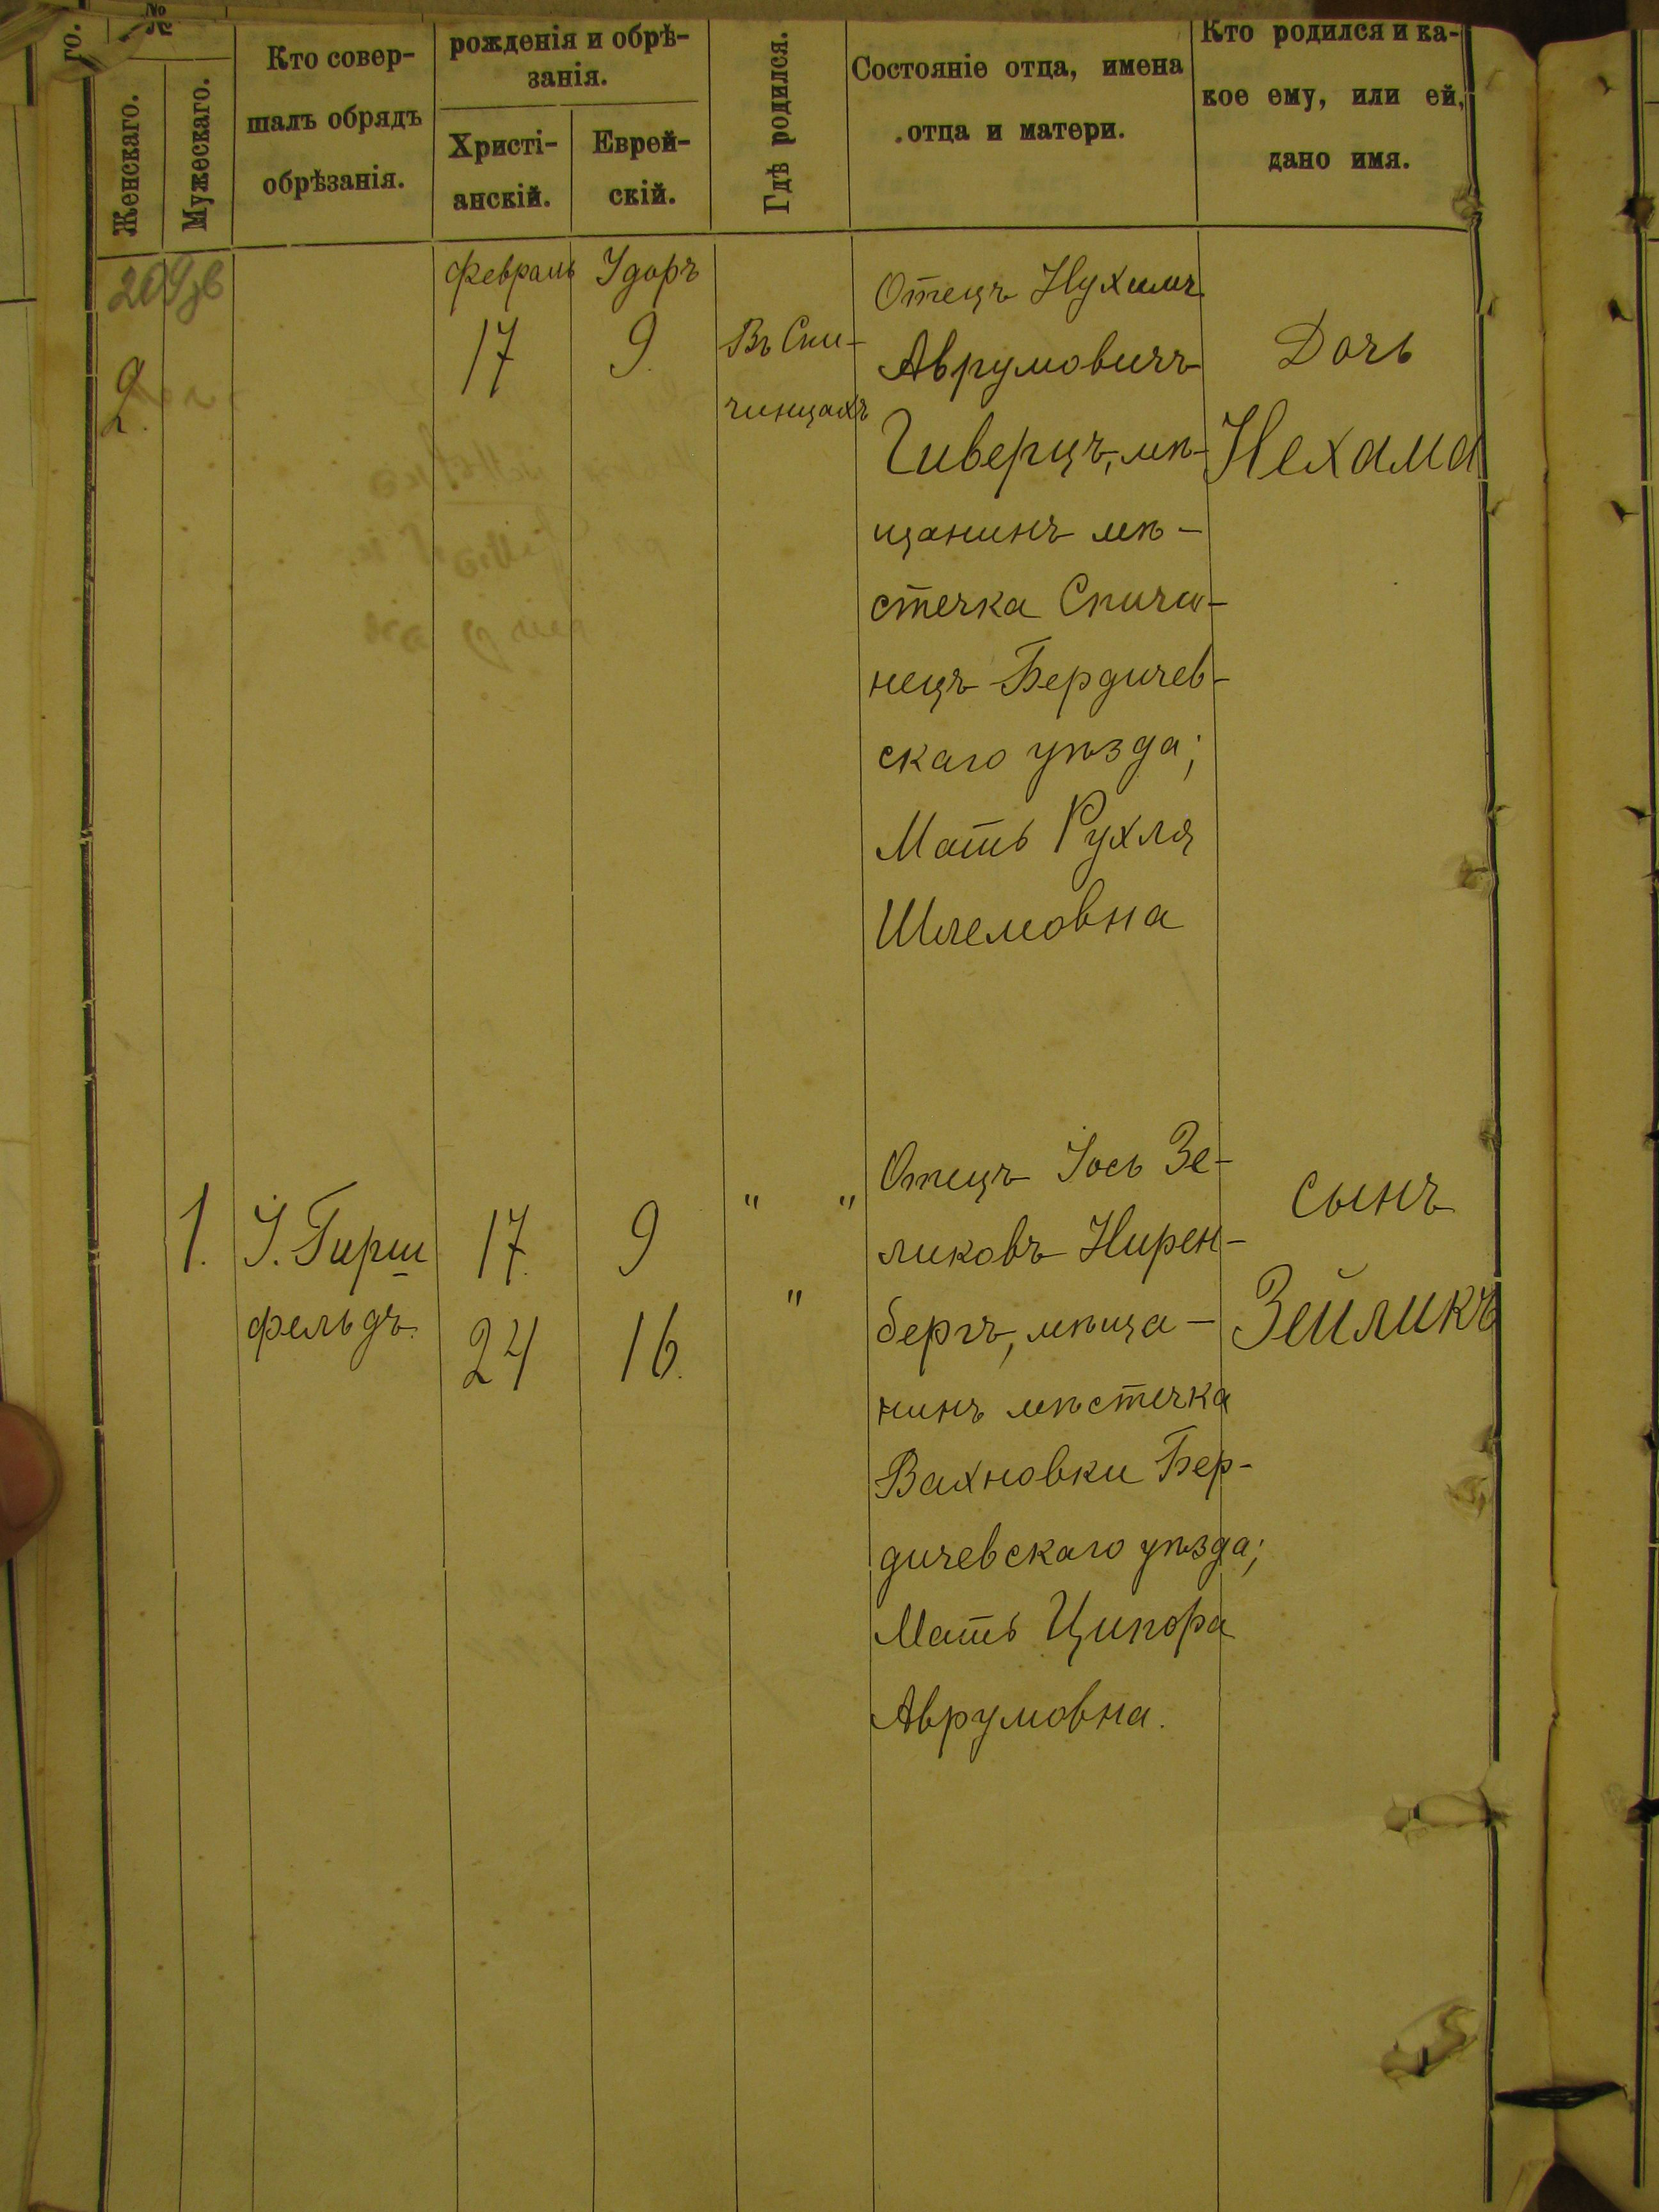 го.
№
Женскаго.
Мужескаго.
Кто совер-
шалъ обрядъ
обрѣзанія.
рожденія и обрѣ-
занія.
Христі-
анскій.
Еврей-
скій.
Гдѣ родился.
Состояніе отца, имена
отца и матери.
Кто родился и ка-
кое ему, или ей,
дано имя.
2.
Февраль
17
Удоръ
9.
Въ Спи-
чинцахъ
Отецъ Нухимъ
Аврумовичъ
Гиверцъ, мѣ-
щанинъ мѣ-
стечка Спичи-
нецъ Бердичев-
скаго уѣзда;
Мать Рухля
Шлемовна
Дочь
Нехама
1.
І. Гирш
фельдъ.
17.
24
9
16.
" "
"
Отецъ Іось Зе-
ликовъ Нирен-
бергъ, мѣща-
нинъ мѣстечка
Вахновки Бер-
дичевскаго уѣзда;
Мать Ципора
Аврумовна.
сынъ
Зейликъ